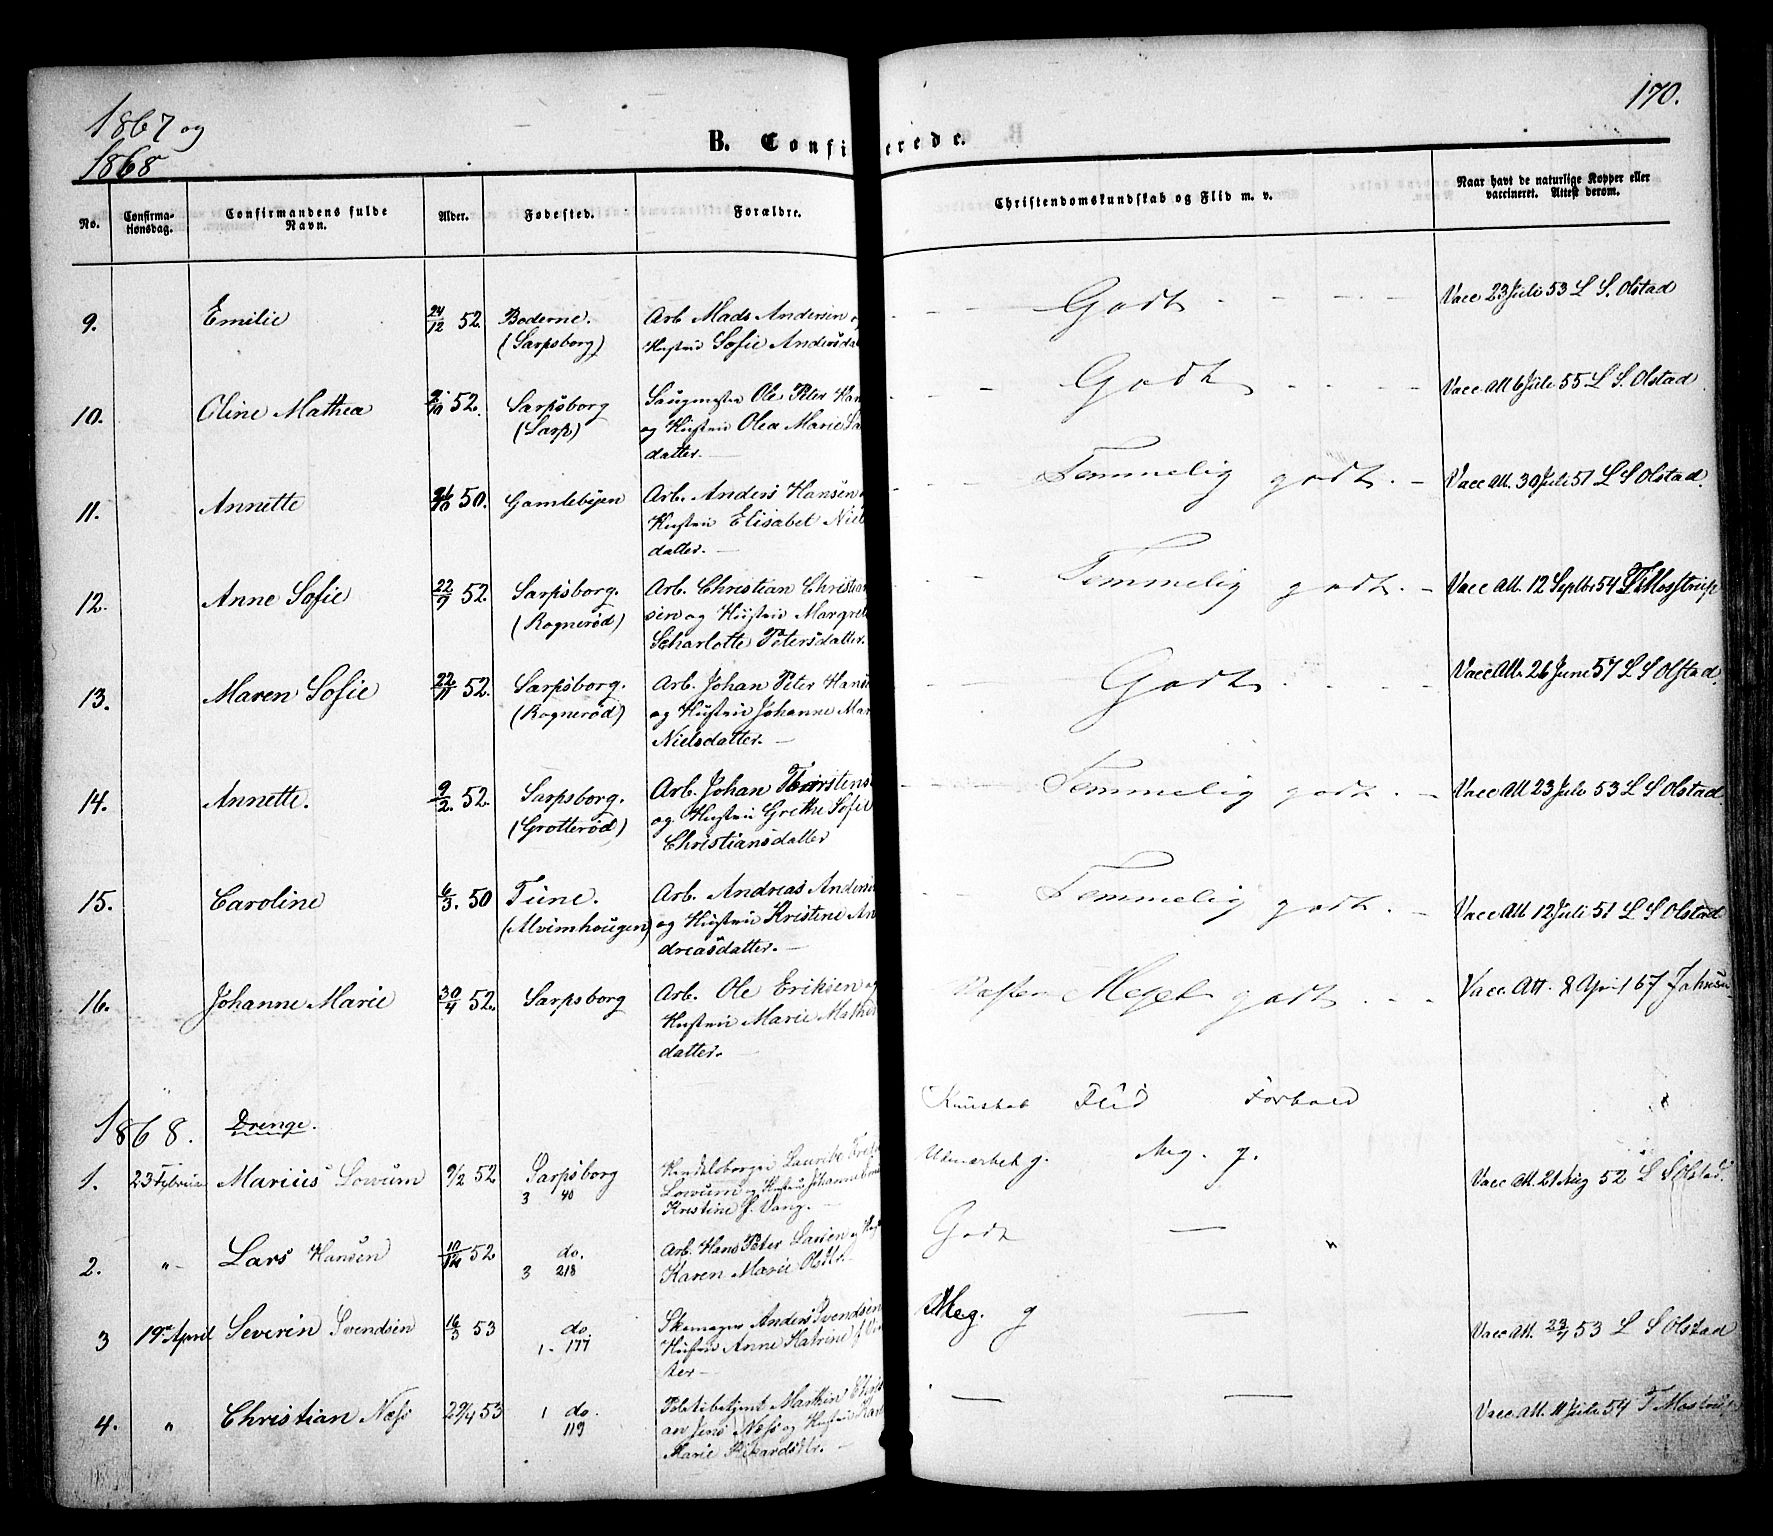 170.
1867 og
1868
B. Confirmerede.
No. Confirmationsdag. Confirmandens fulde Navn. Alder. Fødested. Forældre. Christendomskundskab og Flid m. v. Naar havt de naturlige Kopper eller vaccineret. Attest derom.
9. Emilie 24/12 52. Boderne. Arb. Mads Andersen Godt Vacc 23 Juli 53 L S. Olstad
(Sarpsborg) Hustru Sofie
10. Oline Mathea 52. Sarpsborg Ole Peter Godt Vacc Att 6 Juli 55 L S. Olstad
(Sarp) og Hustru Olea Marie
datter.
11. Annette 50. Gamlebyen Arb. Anders Hansen Temmelig godt. Vacc Att. 30 Juli 51 L S Olstad.
Hustru Elisabet
datter.
12. Anne Sofie 22/9 52. Sarpsborg. Arb. Christian Temmelig godt. Vacc Att. 12 Septbr 54 T. Mosstrup
(Rognerød) sen og Hustru
Scharlotte Petersdatter.
13. Maren Sofie 22/11 52. Sarpsborg. Arb. Johan Peter Godt Vacc Att. 26 Juni 57 L S Olstad.
(Rognerød) og Hustru Johanne
Nielsdatter.
14. Annette. 9/2. 52. Sarpsborg. Arb. Johan Temmelig godt. Vacc Att 23 Juli 53 L S Olstad
(Grotterød) og Hustru Grethe Sofie
Christiansdatter
15. Caroline 6/3. 50 Tune. Arb. Andreas Temmelig godt. Vacc Att 12 Juli 51 L S Olstad
(Alvimhougen) og Hustru Kristine An
dreasdatter.
16. Johanne Marie 30/4 52. Sarpsborg Arb. Ole Eriksen Meget godt Vacc. Att. 8 April 67
Hustru Marie
datter.
1868. Drenge. Kundskab Flid Forhold
1. 23 Februar Marius Lowum 9/2 52 Sarpsborg Udmærket g. Meg. g. Vacc Att. 21 Aug 52 L S Olstad.
3 40 Lowum og Hustru
Kristine f. Vang.
2. " Lars Hansen 10/12 52 do. Arb. Hans Peter Larsen Godt — "
3 218 Karen Marie Olsdtr.
3 19de April Severin Svendsen 16/3 53 do. Anders Svendsen Meg. g — Vacc Att. 53 L S Olstad
1 - 177. Hustru Anne
ter
4. " Christian Næss 29/4 53 1 do. Politibetjent — — Vacc Att. 11 Juli 54
119 an Jens Næss og Hustru
Marie